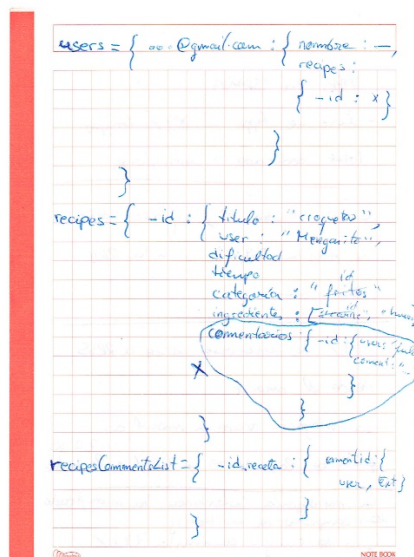 users = { ... @gmail.com : { nombre : —,
recipes :
{ -id : x }
}
}
recipes = { -id : { titulo : "croquetas",
user : "Menganito",
dificultad
tiempo
id
categoria : "fritos"
ingredientes : [
comentarios : { -id : { user :
coment : "
}
X
}
}
recipesCommentsList = { -id_receta : { comentid : {
user, txt }
}
}
NOTE BOOK